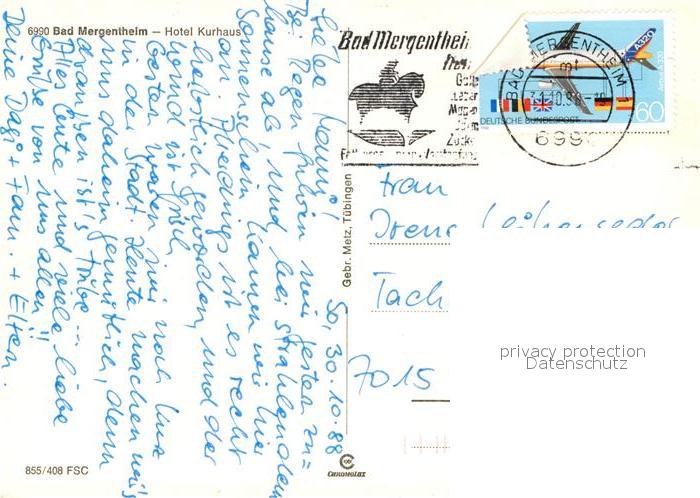 6990 Bad Mergentheim – Hotel Kurhaus
So, 30.10.88
Liebe Nanni!
Bei Regen fuhren wir gestern zu=
hause los, und bei strahlendem
Sonnenschein kamen wir hier
an. Allerdings ist es recht
herbstlich geworden, und der
Wind ist frisch.
Gestern waren wir noch kurz
in der Stadt. Heute machen wir's
uns daheim gemütlich, denn
draußen ist's trübe ...
Alles Gute und viele, liebe
Grüße von uns allen!
Deine Dagi + Fam. + Eltern.
855/408 FSC
Gebr. Metz, Tübingen
CHROMOLUX
Bad Mergentheim
BAD MERGENTHEIM
31.10.88
6990
A320
Airbus A 320
DEUTSCHE BUNDESPOST
60
Frau
Irene
7015
privacy protection
Datenschutz